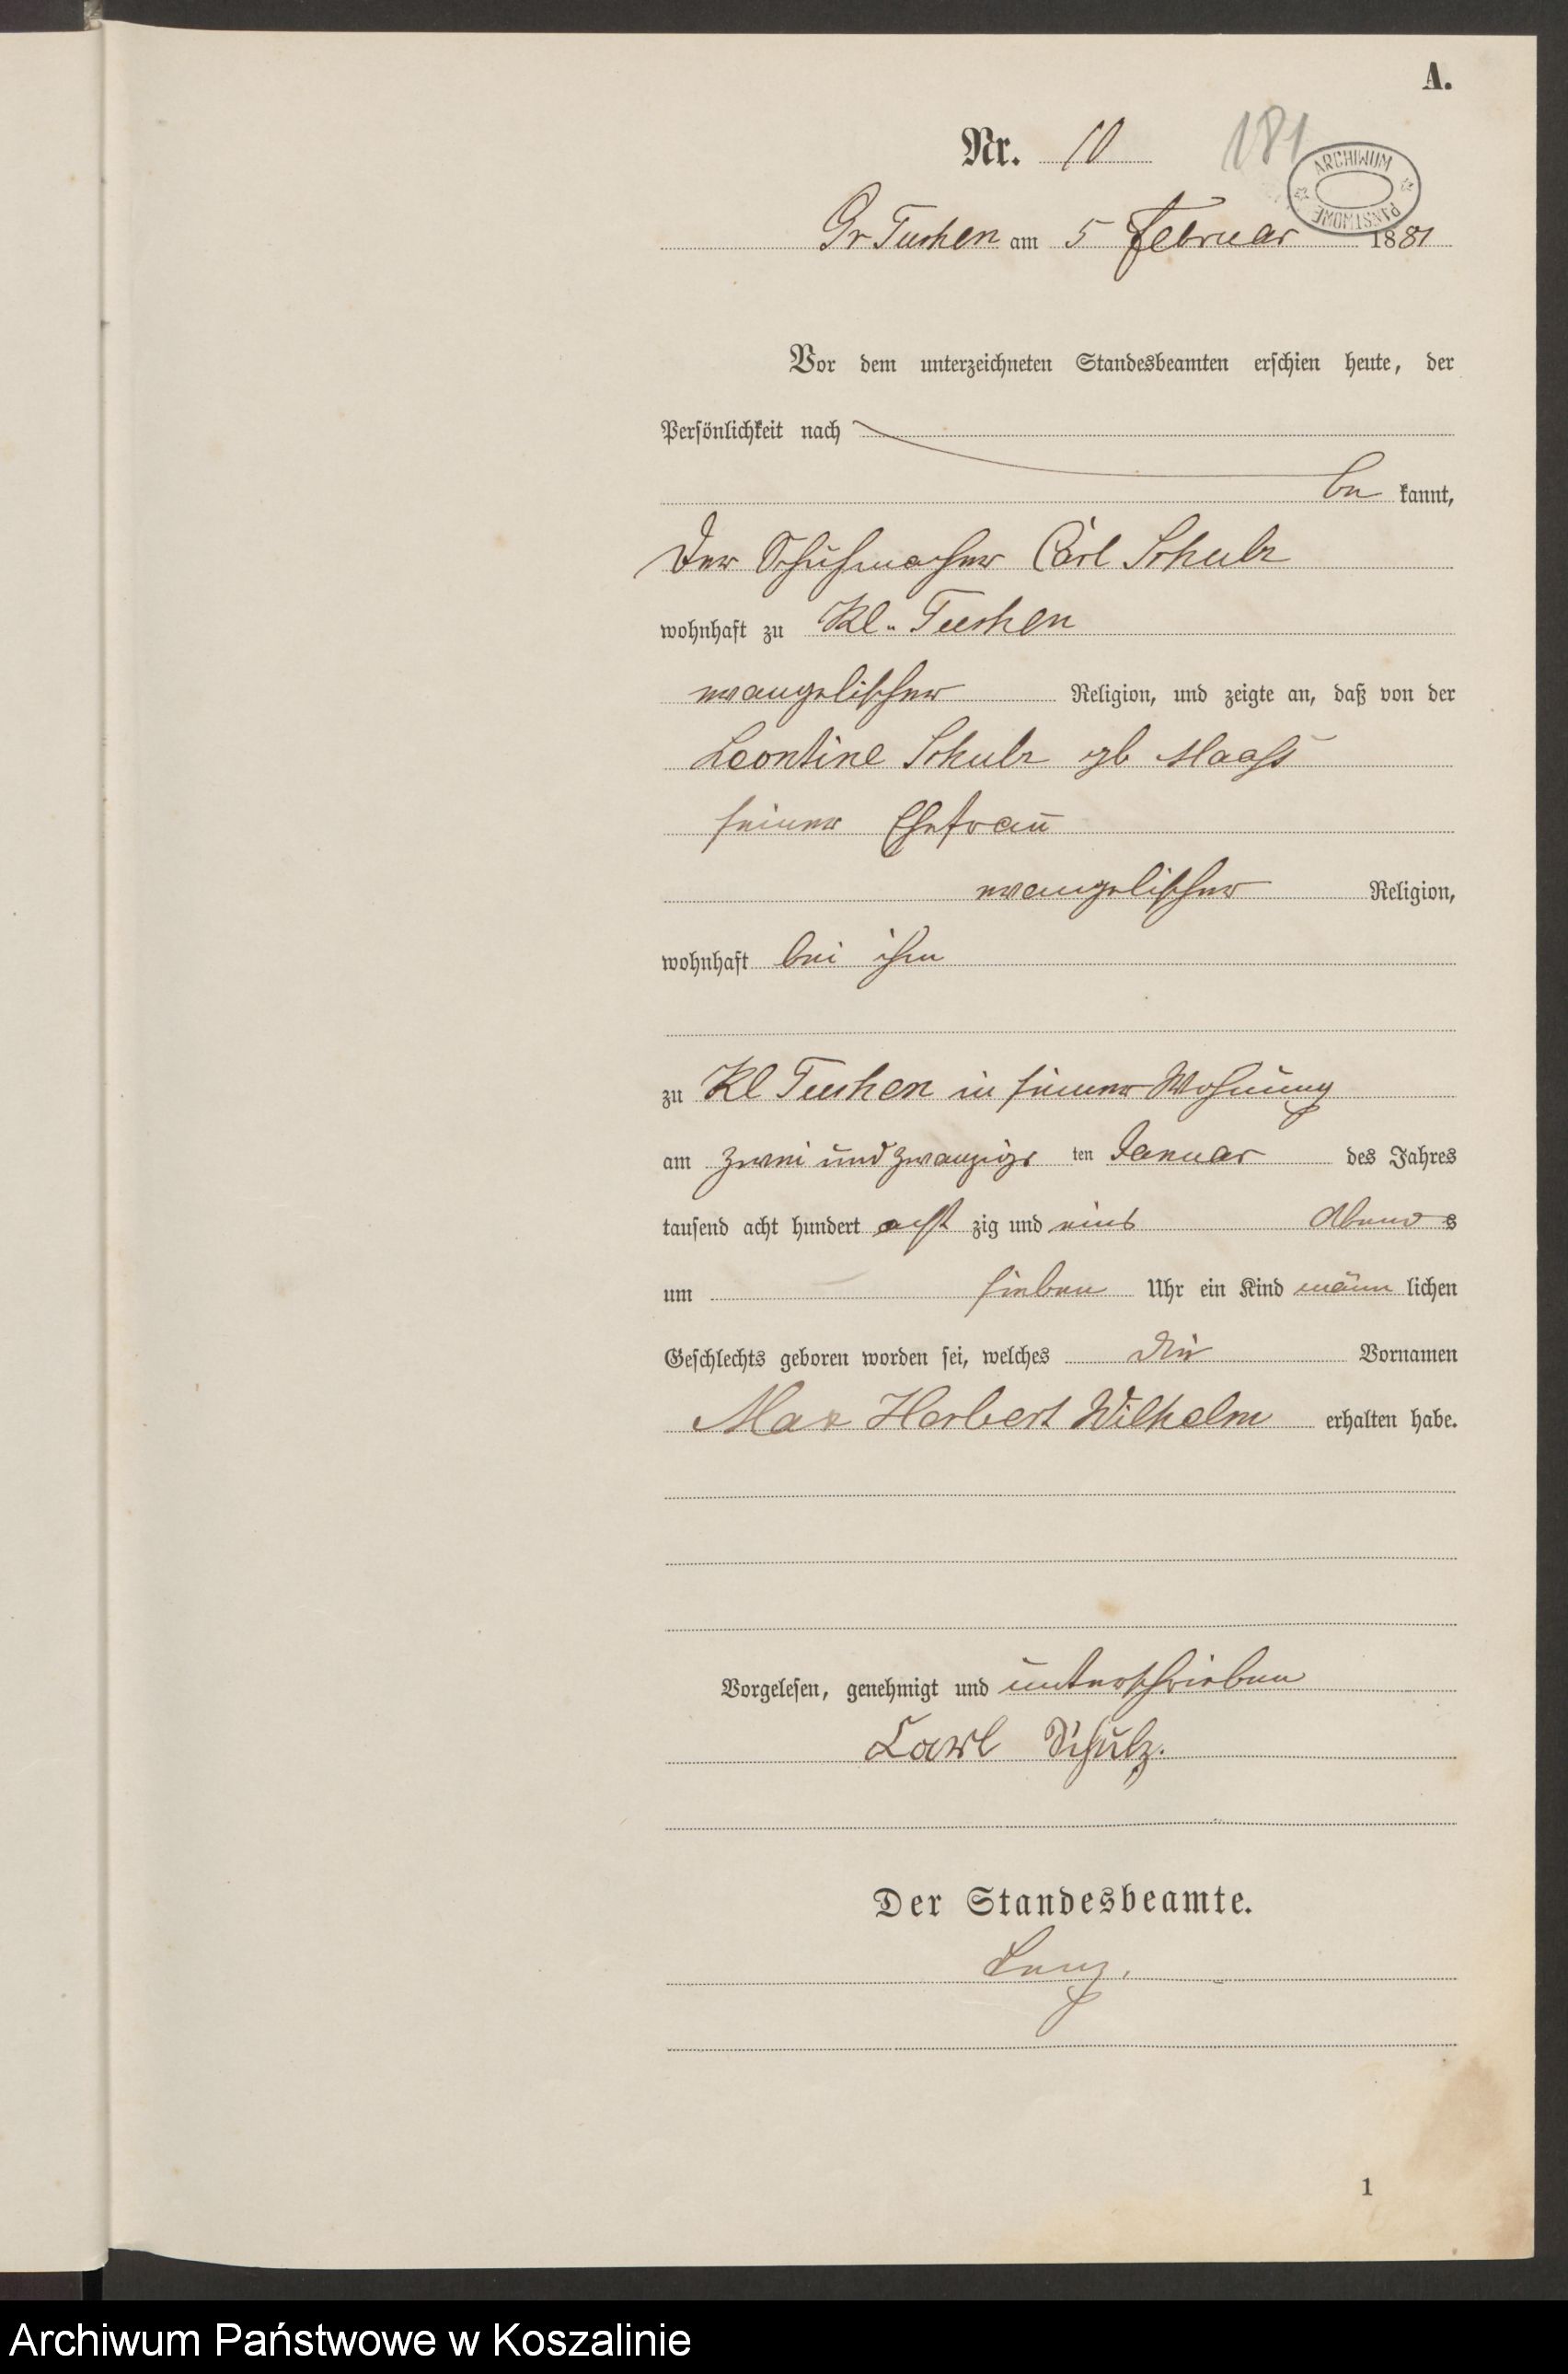 A.
Nr. 10 181
ARCHIWUM PAŃSTWOWE
Gr Tuchen am 5 Februar 1881
Vor dem unterzeichneten Standesbeamten erschien heute, der
Persönlichkeit nach
be kannt,
Der Schuhmacher Carl Schulz
wohnhaft zu Kl. Tuchen
evangelischer Religion, und zeigte an, daß von der
Leontine Schulz gb Maaß
seiner Ehefrau
evangelischer Religion,
wohnhaft bei ihm
zu Kl Tuchen in seiner Wohnung
am zwei und zwanzigs ten Januar des Jahres
tausend acht hundert acht zig und eins Abend s
um sieben Uhr ein Kind männ lichen
Geschlechts geboren worden sei, welches die Vornamen
Max Herbert Wilhelm erhalten habe.
Vorgelesen, genehmigt und unterschrieben
Carl Schulz.
Der Standesbeamte.
1
Archiwum Państwowe w Koszalinie